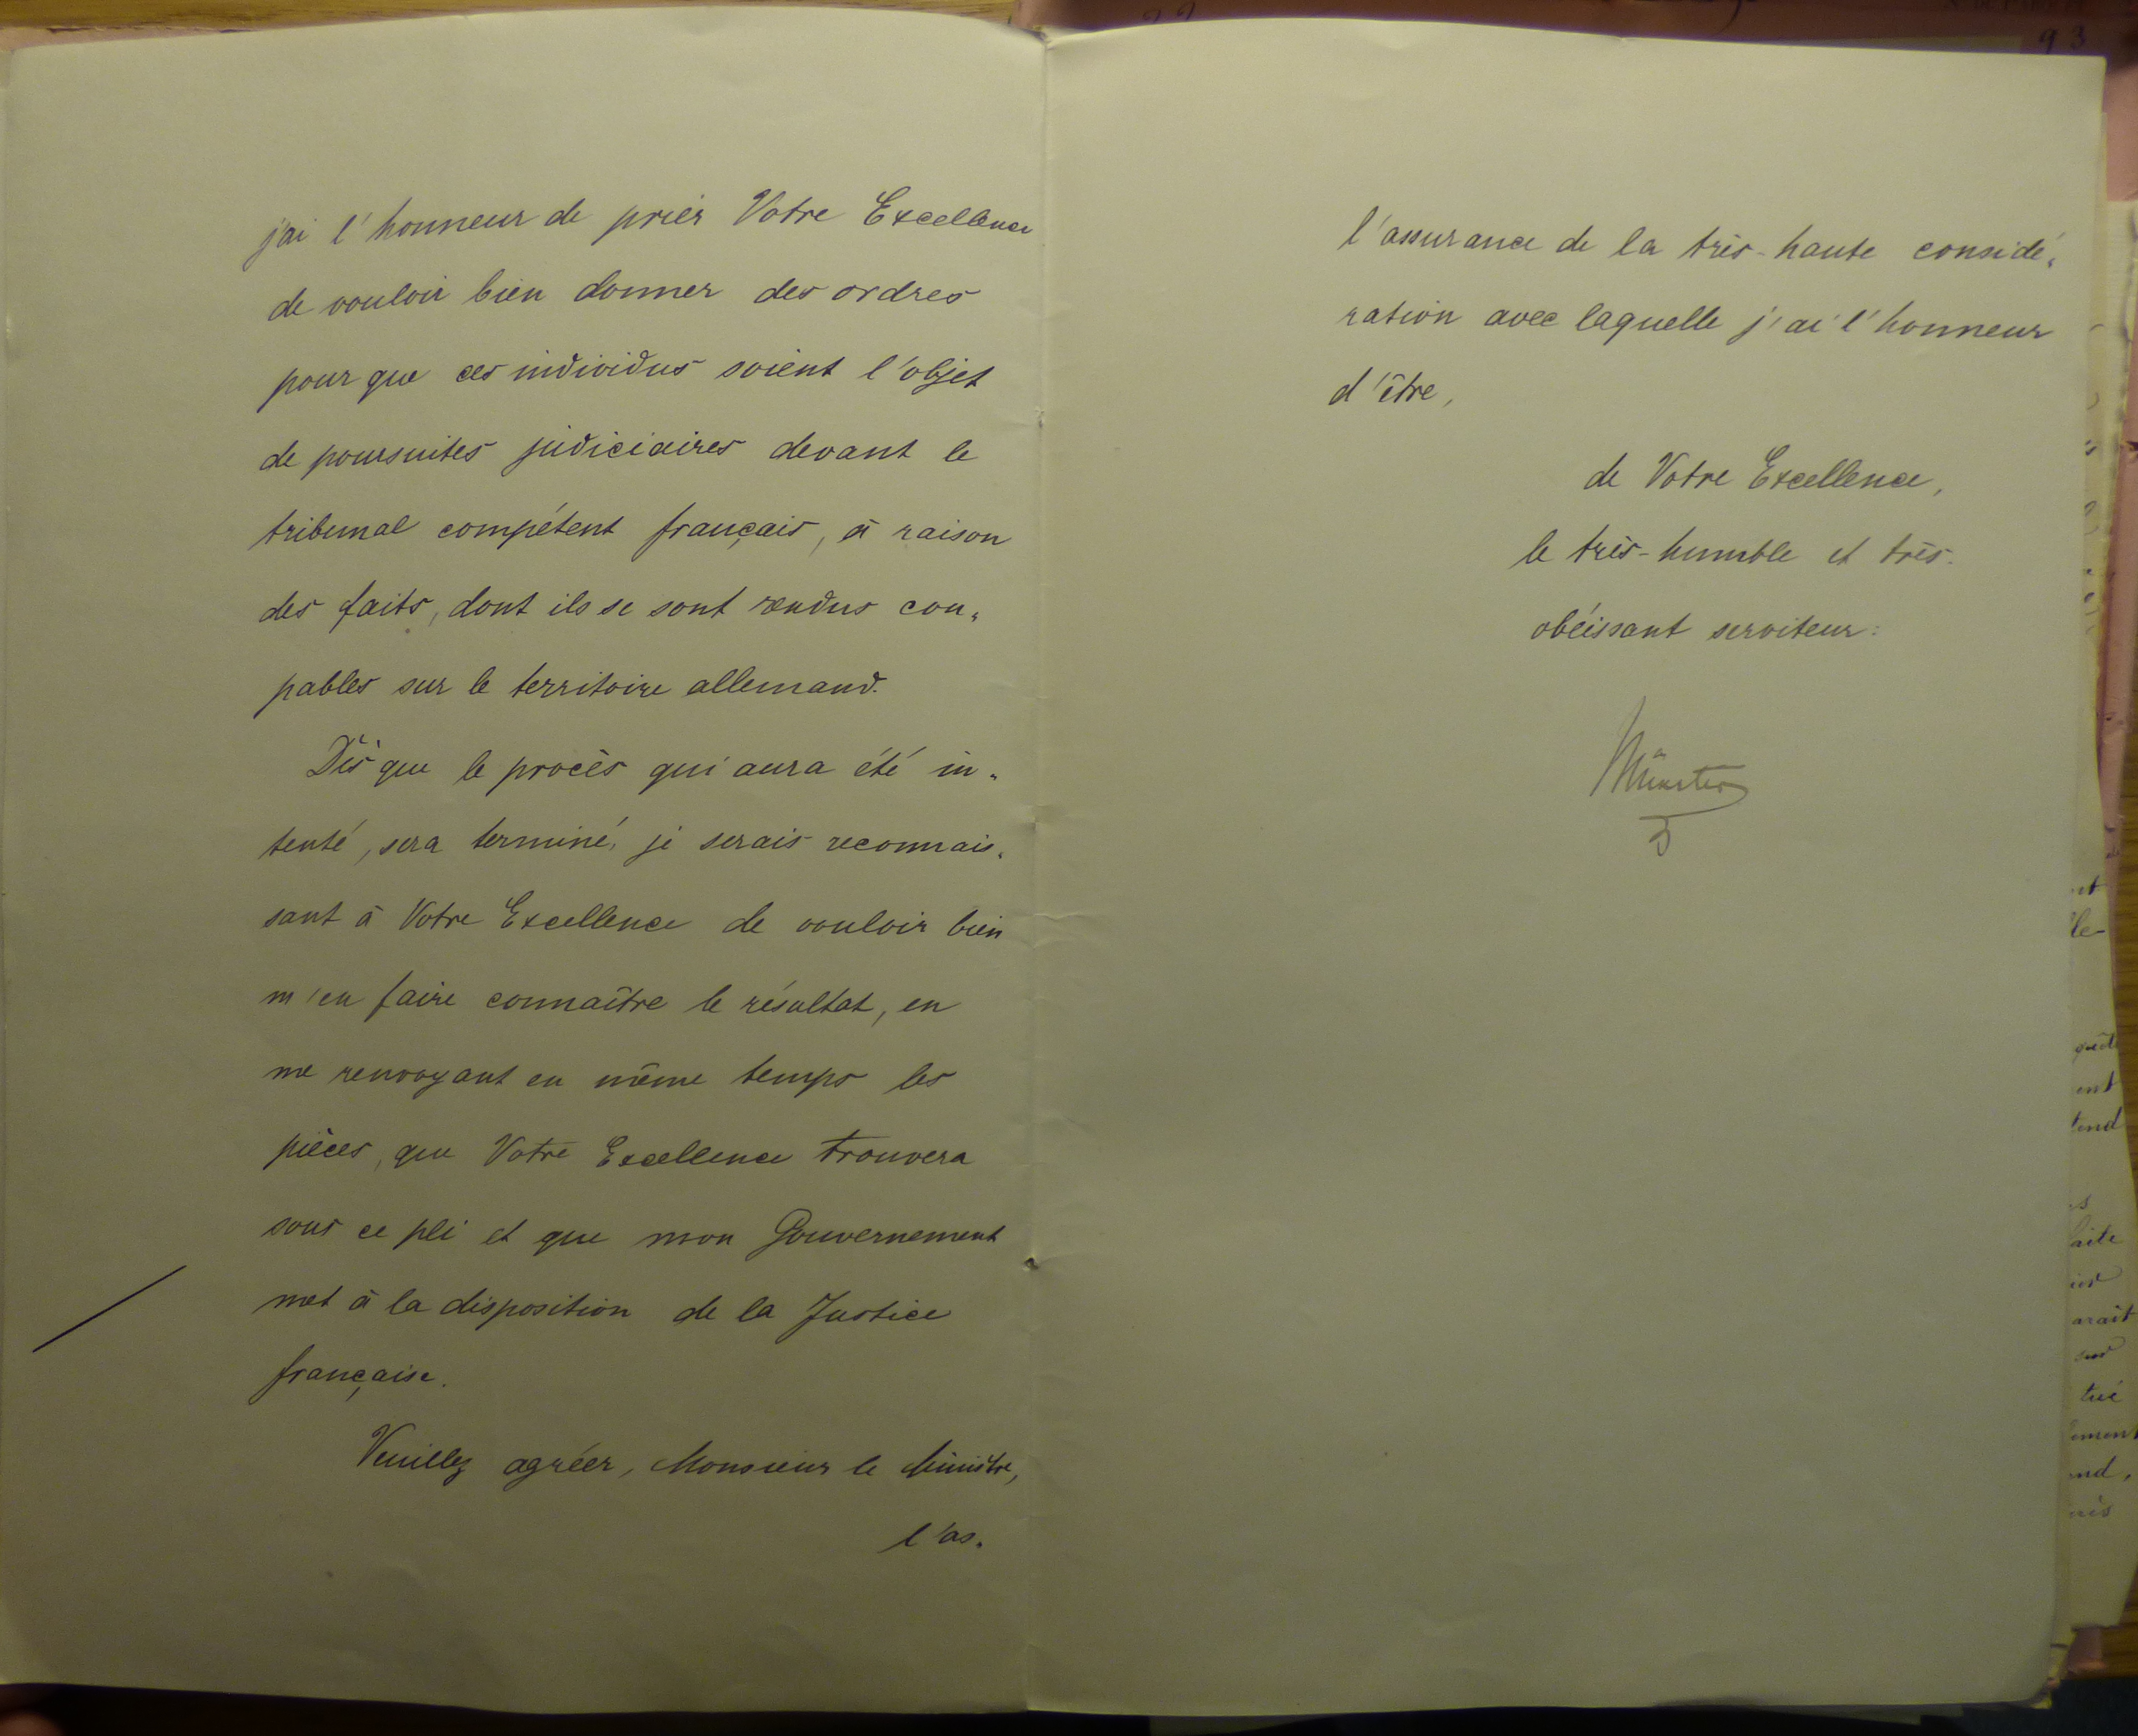 j'ai l'honneur de prier Votre Excellence
de vouloir bien donner des ordres
pour que ces individus soient l'objet
de poursuites judiciaires devant le
tribunal compétent français, à raison
des faits, dont ils se sont rendus cou-
pables sur le territoire allemand.
Dès que le procès qui aura été in-
tenté, sera terminé, je serais reconnais-
sant à Votre Excellence de vouloir bien
m'en faire connaître le résultat, en
me renvoyant en même temps les
pièces, que Votre Excellence trouvera
sous ce pli et que mon Gouvernement
met à la disposition de la Justice
française.
Veuillez agréer, Monsieur le Ministre,
l'as-
93
l'assurance de la très-haute considé-
ration avec laquelle j'ai l'honneur
d'être,
de Votre Excellence,
le très-humble et très-
obéissant serviteur:
Münster